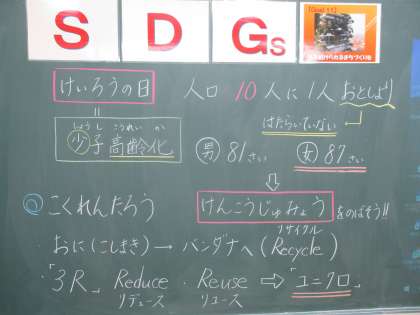 SDGs
【Goal 11】
けいろうの日
人口 10人に1人 おとしより
はたらいていない
しょうし こうれいか
少子 高齢化
男 81さい
女 87さい
⇩
◎ こくれんたろう
けんこうじゅみょう をのばそう!!
・おに(こしまき)→バンダナへ(Recycle)
リサイクル
・「3R」 Reduce・Reuse ⇨ 「ユニクロ」
リデュース リユース